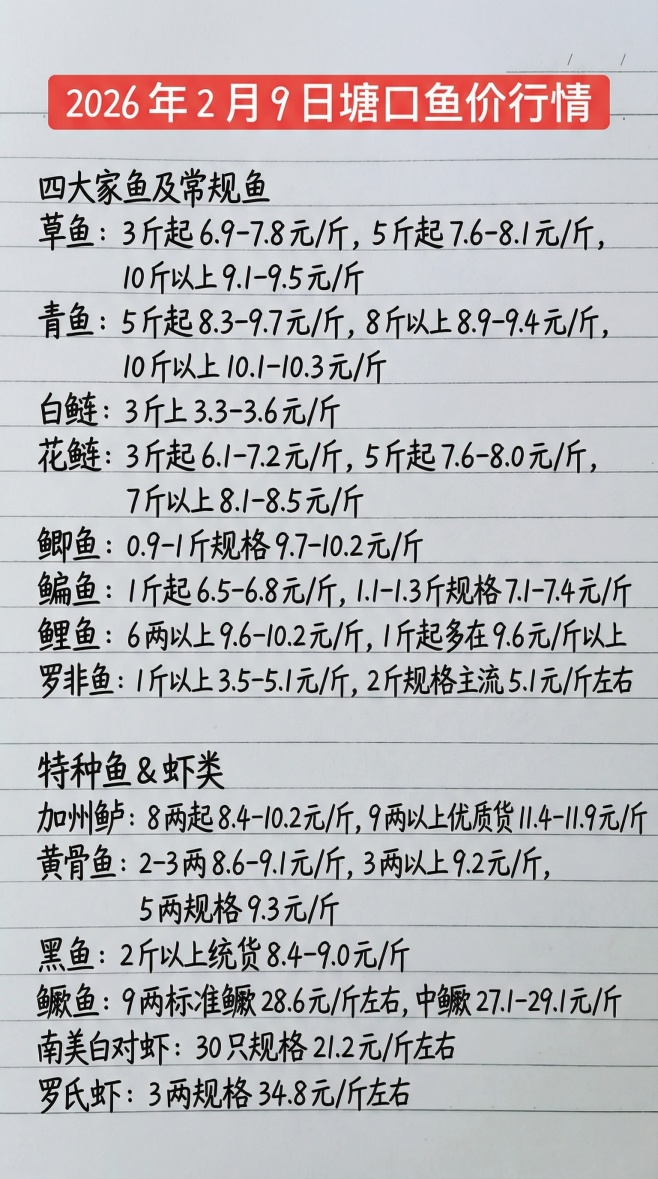 2026年2月9日塘口鱼价行情
四大家鱼及常规鱼
草鱼：3斤起6.9-7.8元/斤，5斤起7.6-8.1元/斤，
10斤以上9.1-9.5元/斤
青鱼：5斤起8.3-9.7元/斤，8斤以上8.9-9.4元/斤，
10斤以上10.1-10.3元/斤
白鲢：3斤上3.3-3.6元/斤
花鲢：3斤起6.1-7.2元/斤，5斤起7.6-8.0元/斤，
7斤以上8.1-8.5元/斤
鲫鱼：0.9-1斤规格9.7-10.2元/斤
鳊鱼：1斤起6.5-6.8元/斤，1.1-1.3斤规格7.1-7.4元/斤
鲤鱼：6两以上9.6-10.2元/斤，1斤起多在9.6元/斤以上
罗非鱼：1斤以上3.5-5.1元/斤，2斤规格主流5.1元/斤左右
特种鱼&虾类
加州鲈：8两起8.4-10.2元/斤，9两以上优质货11.4-11.9元/斤
黄骨鱼：2-3两8.6-9.1元/斤，3两以上9.2元/斤，
5两规格9.3元/斤
黑鱼：2斤以上统货8.4-9.0元/斤
鳜鱼：9两标准鳜28.6元/斤左右，中鳜27.1-29.1元/斤
南美白对虾：30只规格21.2元/斤左右
罗氏虾：3两规格34.8元/斤左右